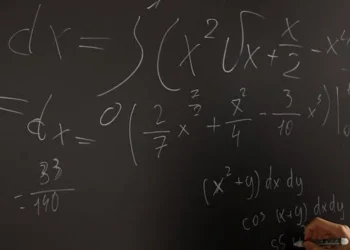 dx = ∫ (x² √x + x/2 - x⁴
= dx = 0 (2/7 x^(7/2) + x²/4 - 3/10 x⁵) |
= 33/140
(x² + y) dx dy
cos (x+y) dx dy